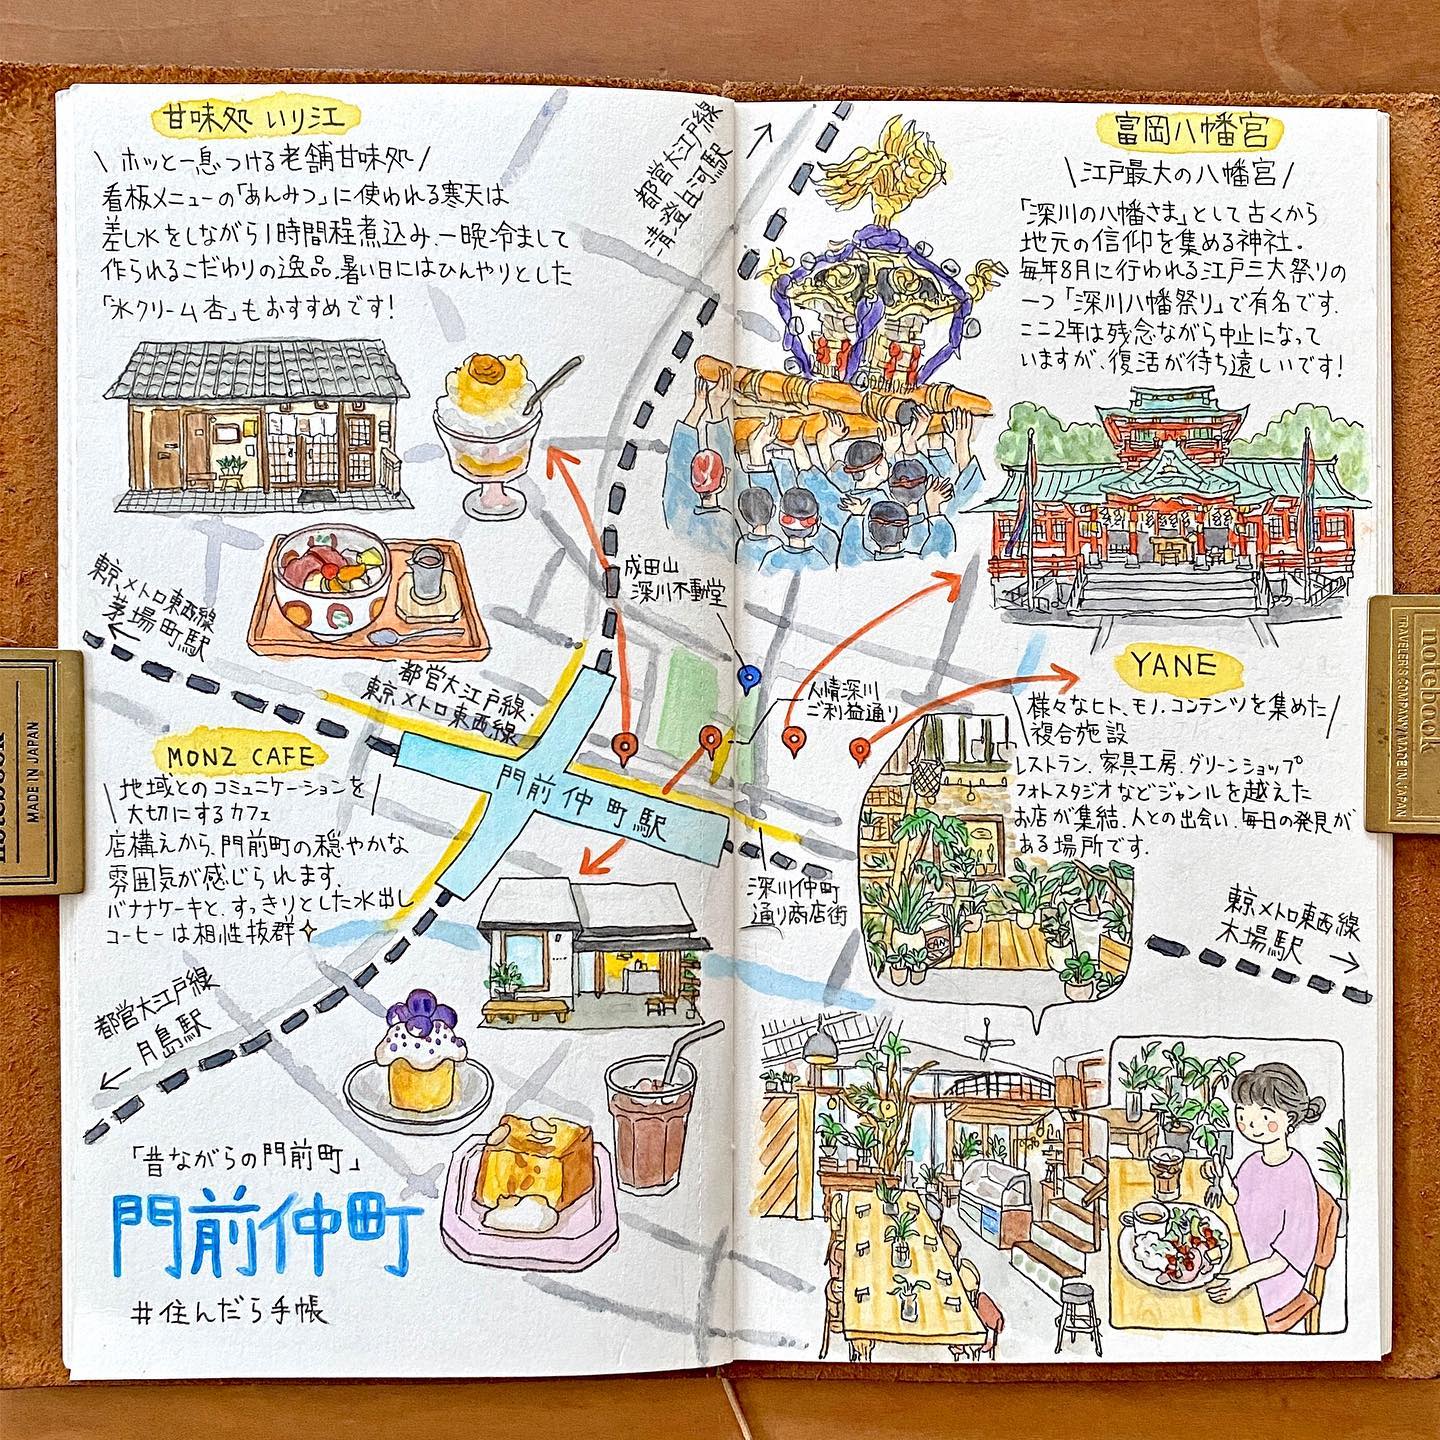 甘味処 いり江
\ ホッと一息つける老舗甘味処 /
看板メニューの「あんみつ」に使われる寒天は
差し水をしながら1時間程煮込み、一晩冷まして
作られるこだわりの逸品。暑い日にはひんやりとした
「氷クリーム杏」もおすすめです!
都営大江戸線
清澄白河駅
東京メトロ東西線
茅場町駅
都営大江戸線・
東京メトロ東西線
門前仲町駅
成田山
深川不動堂
MONZ CAFE
\ 地域とのコミュニケーションを /
大切にするカフェ
店構えから、門前町の穏やかな
雰囲気が感じられます。
バナナケーキと、すっきりとした水出し
コーヒーは相性抜群✧
都営大江戸線
月島駅
「昔ながらの門前町」
門前仲町
#住んだら手帳
富岡八幡宮
\ 江戸最大の八幡宮 /
「深川の八幡さま」として古くから
地元の信仰を集める神社。
毎年8月に行われる江戸三大祭りの
一つ「深川八幡祭り」で有名です。
ここ2年は残念ながら中止になって
いますが、復活が待ち遠しいです!
人情深川
ご利益通り
YANE
\ 様々なヒト、モノ、コンテンツを集めた /
複合施設
レストラン、家具工房、グリーンショップ
フォトスタジオなどジャンルを越えた
お店が集結。人との出会い、毎日の発見が
ある場所です。
深川仲町
通り商店街
東京メトロ東西線
木場駅
notebook
MADE IN JAPAN
notebook
TRAVELER'S COMPANY/MADE IN JAPAN